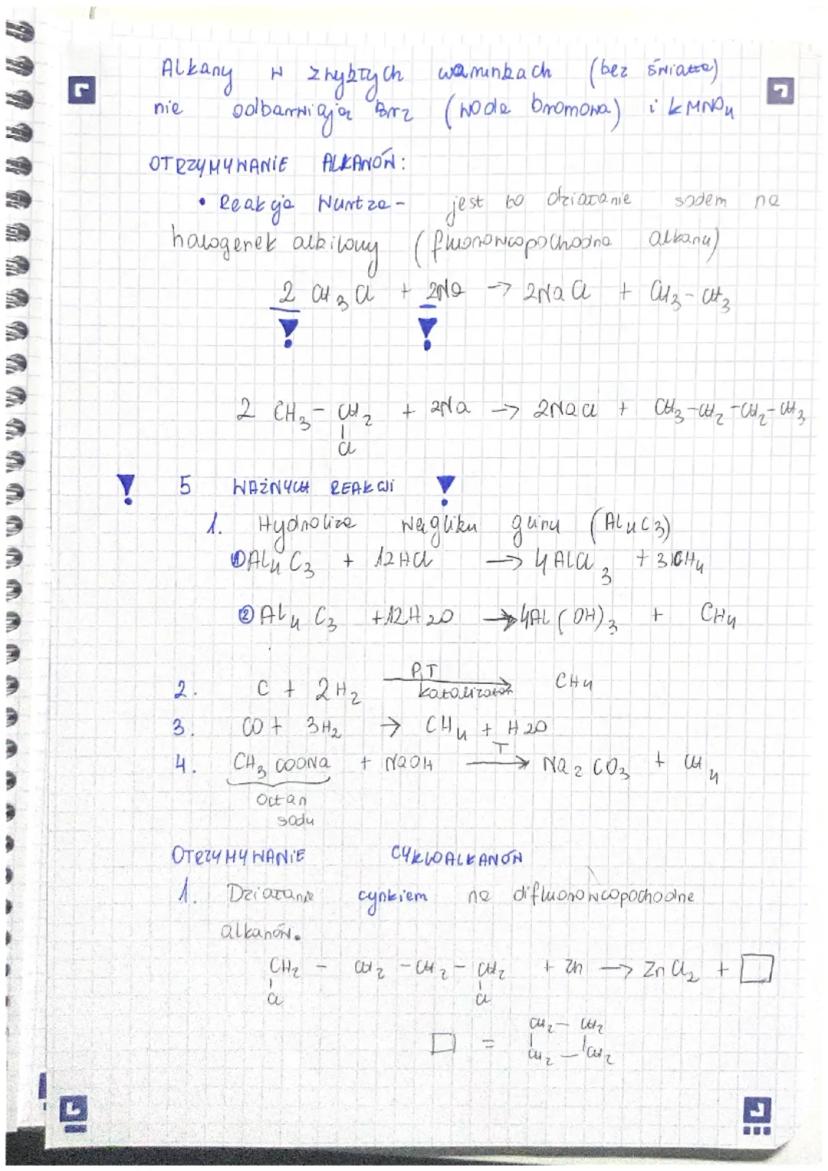 Alkany w zwykłych warunkach (bez światła)
nie odbarwiają Br2 (woda bromowa) i KMnO4
OTRZYMYWANIE ALKANÓW:
• Reakcja Wurtza - jest to działanie sodem na
halogenek alkilowy (fluorowcopochodna alkanu)
2 CH3Cl + 2Na → 2NaCl + CH3-CH3
! !
2 CH3 - CH2 + 2Na → 2NaCl + CH3-CH2-CH2-CH3
Cl
! 5 WAŻNYCH REAKCJI !
1. Hydroliza węgliku glinu (Al4C3)
① Al4C3 + 12HCl → 4AlCl3 + 3CH4
② Al4C3 + 12H2O → 4Al(OH)3 + CH4
P,T
2. C + 2H2 → CH4
katalizator
3. CO + 3H2 → CH4 + H2O
T
4. CH3COONa + NaOH → Na2CO3 + CH4
octan
sodu
OTRZYMYWANIE CYKLOALKANÓW
1. Działanie cynkiem na difluorowcopochodne
alkanów.
CH2 - CH2 - CH2 - CH2 + Zn → ZnCl2 + □
Cl Cl
CH2 - CH2
□ =
CH2 - CH2